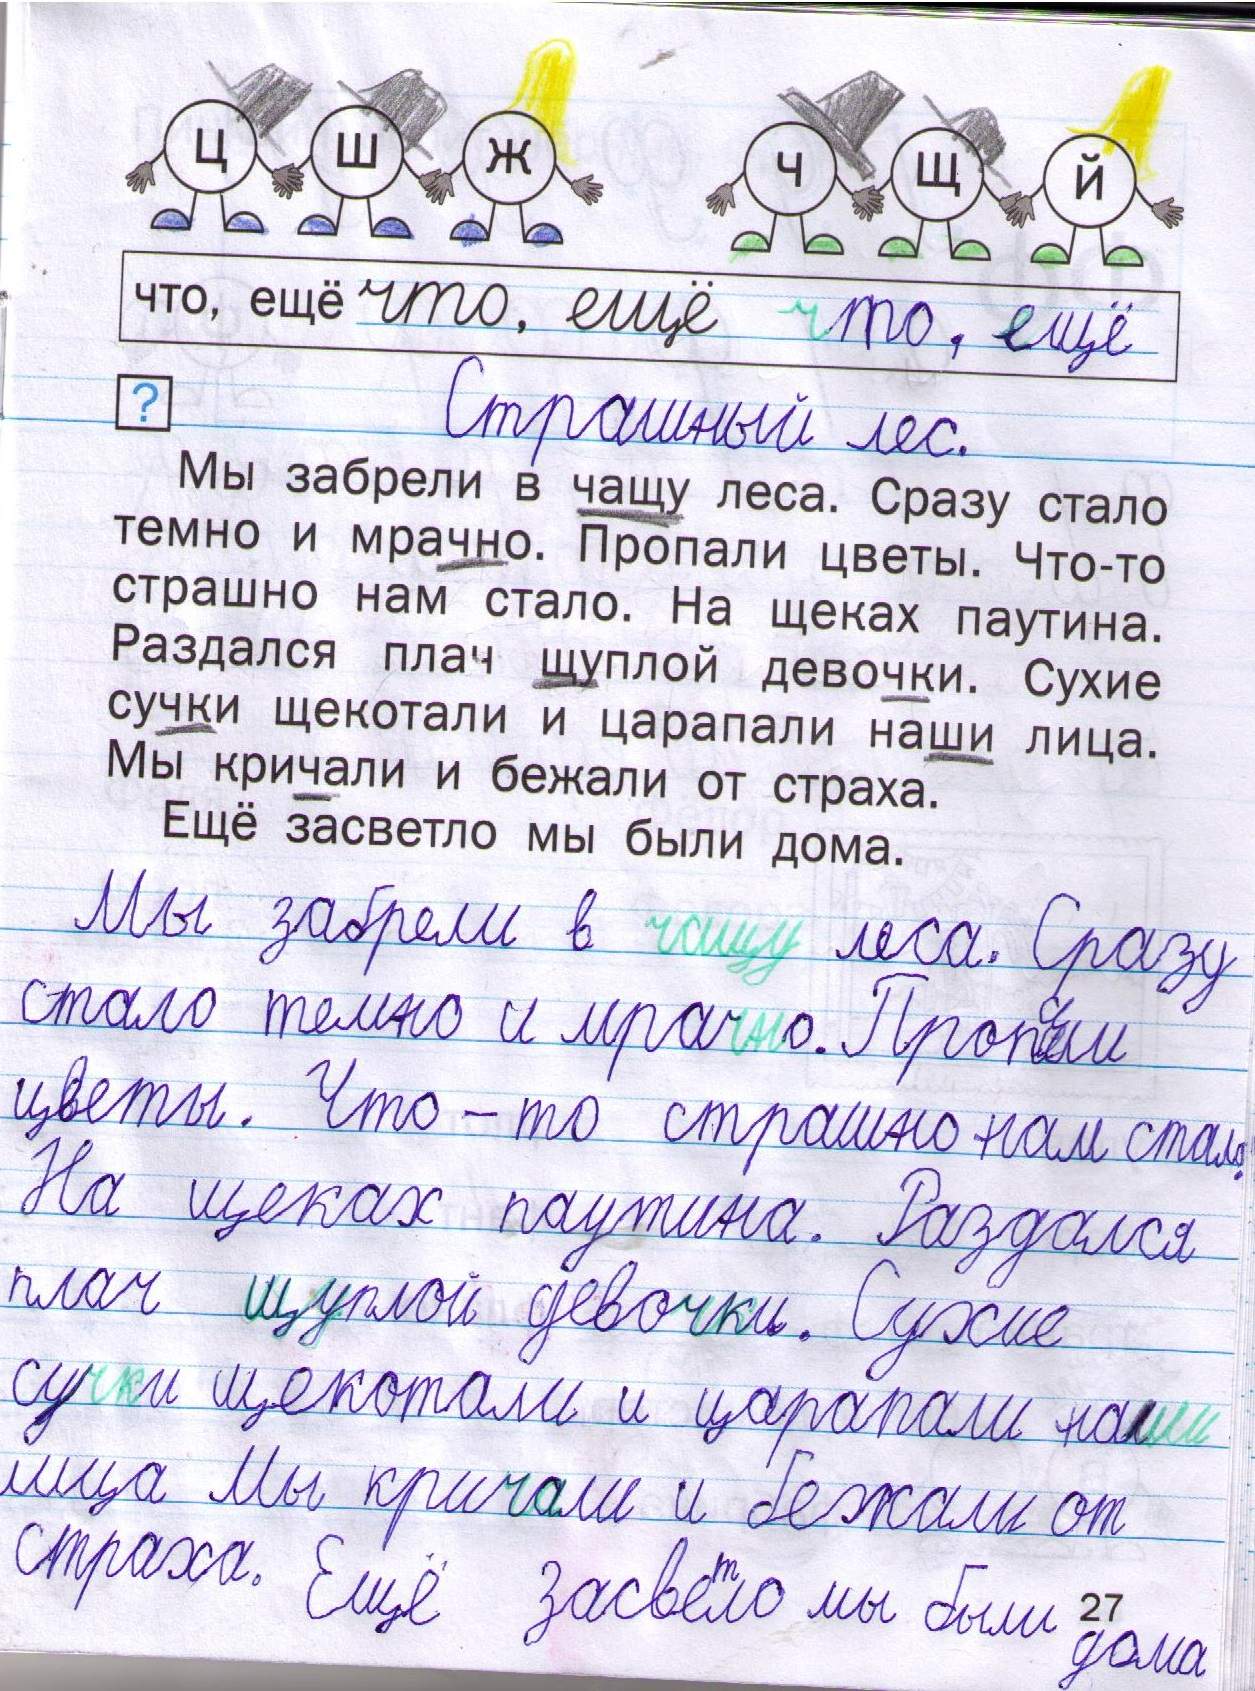 Ц Ш Ж Ч Щ Й
что, ещё что, ещё что, ещё
?
Страшный лес.
Мы забрели в чащу леса. Сразу стало
темно и мрачно. Пропали цветы. Что-то
страшно нам стало. На щеках паутина.
Раздался плач щуплой девочки. Сухие
сучки щекотали и царапали наши лица.
Мы кричали и бежали от страха.
Ещё засветло мы были дома.
Мы забрели в чащу леса. Сразу
стало темно и мрачно. Пропали
цветы. Что-то страшно нам стало.
На щеках паутина. Раздался
плач щуплой девочки. Сухие
сучки щекотали и царапали наши
лица Мы кричали и бежали от
страха. Ещё засветло мы были
27
дома